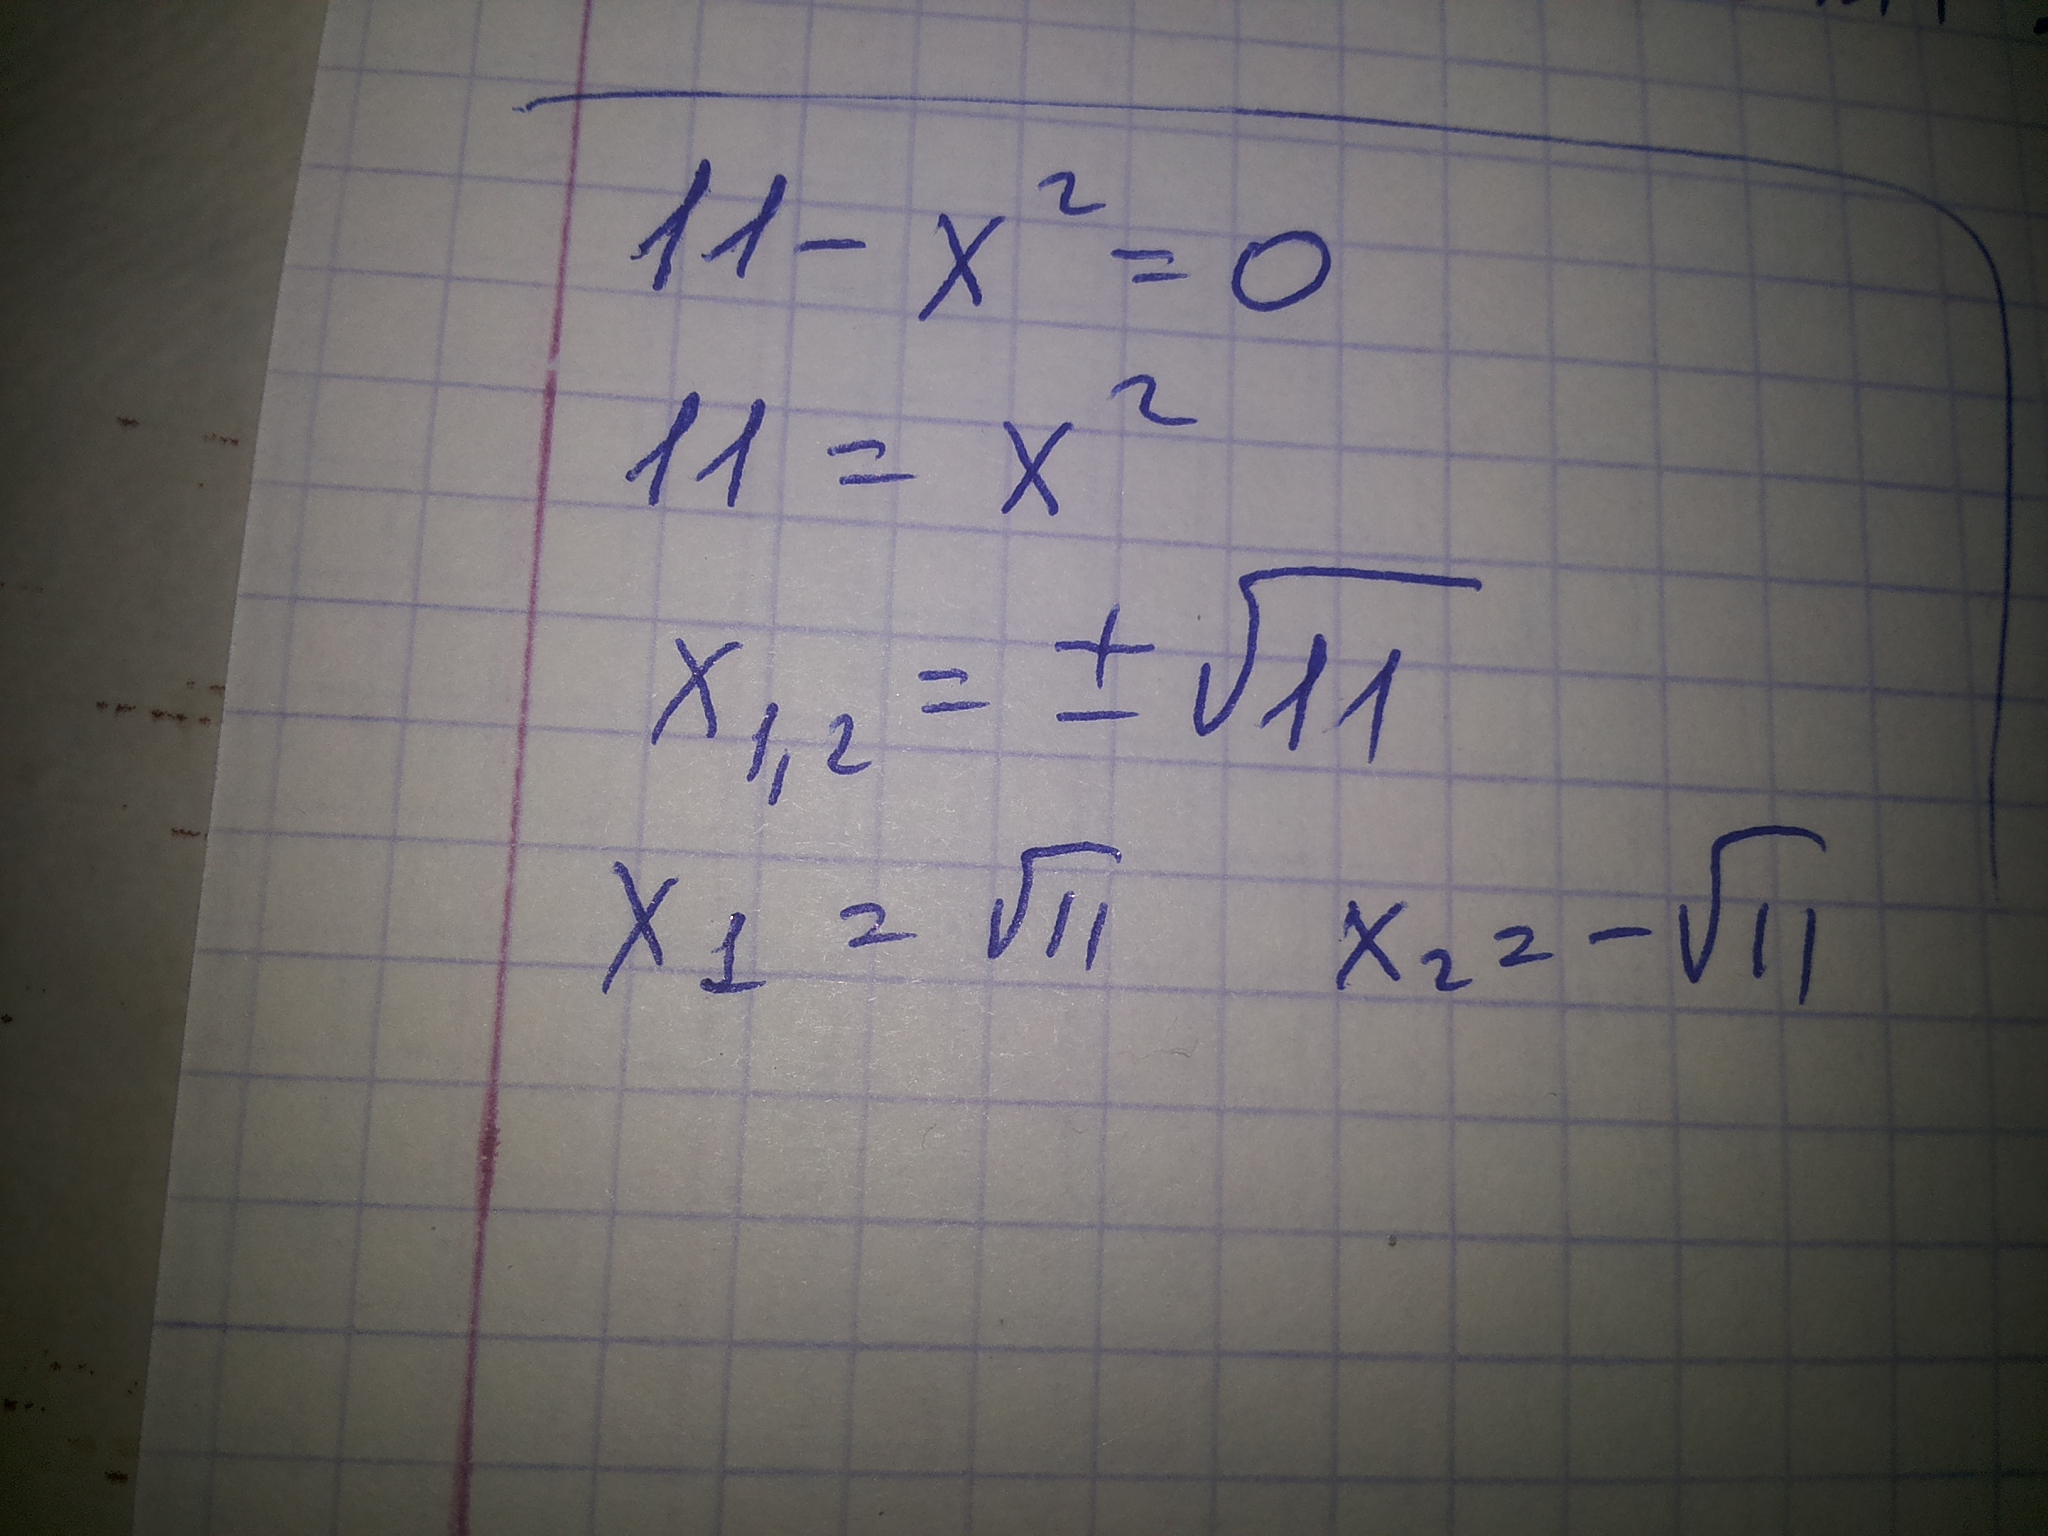 11 - x² = 0
11 = x²
x₁,₂ = ± √11
x₁ = √11 x₂ = - √11